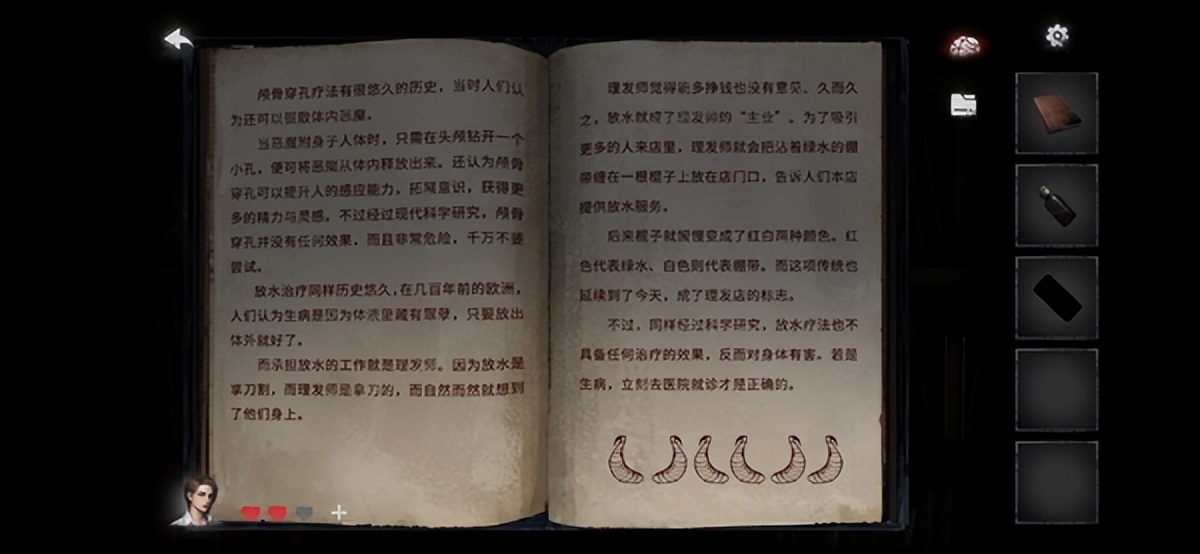 颅骨穿孔疗法有很悠久的历史，当时人们认
为还可以驱散体内恶魔。
当恶魔附身于人体时，只需在头颅钻开一个
小孔，便可将恶魔从体内释放出来。还认为颅骨
穿孔可以提升人的感应能力，拓展意识，获得更
多的精力与灵感。不过经过现代科学研究，颅骨
穿孔并没有任何效果，而且非常危险，千万不要
尝试。
放水治疗同样历史悠久，在几百年前的欧洲，
人们认为生病是因为体液里藏有罪孽，只要放出
体外就好了。
而承担放水的工作就是理发师。因为放水是
拿刀割，而理发师是拿刀的，而自然而然就想到
了他们身上。
理发师觉得能多挣钱也没有意见。久而久
之，放水就成了理发师的“主业”。为了吸引
更多的人来店里，理发师就会把沾着绿水的绷
带缠在一根棍子上放在店门口，告诉人们本店
提供放水服务。
后来棍子就慢慢变成了红白两种颜色。红
色代表绿水、白色则代表绷带。而这项传统也
延续到了今天，成了理发店的标志。
不过，同样经过科学研究，放水疗法也不
具备任何治疗的效果，反而对身体有害。若是
生病，立刻去医院就诊才是正确的。